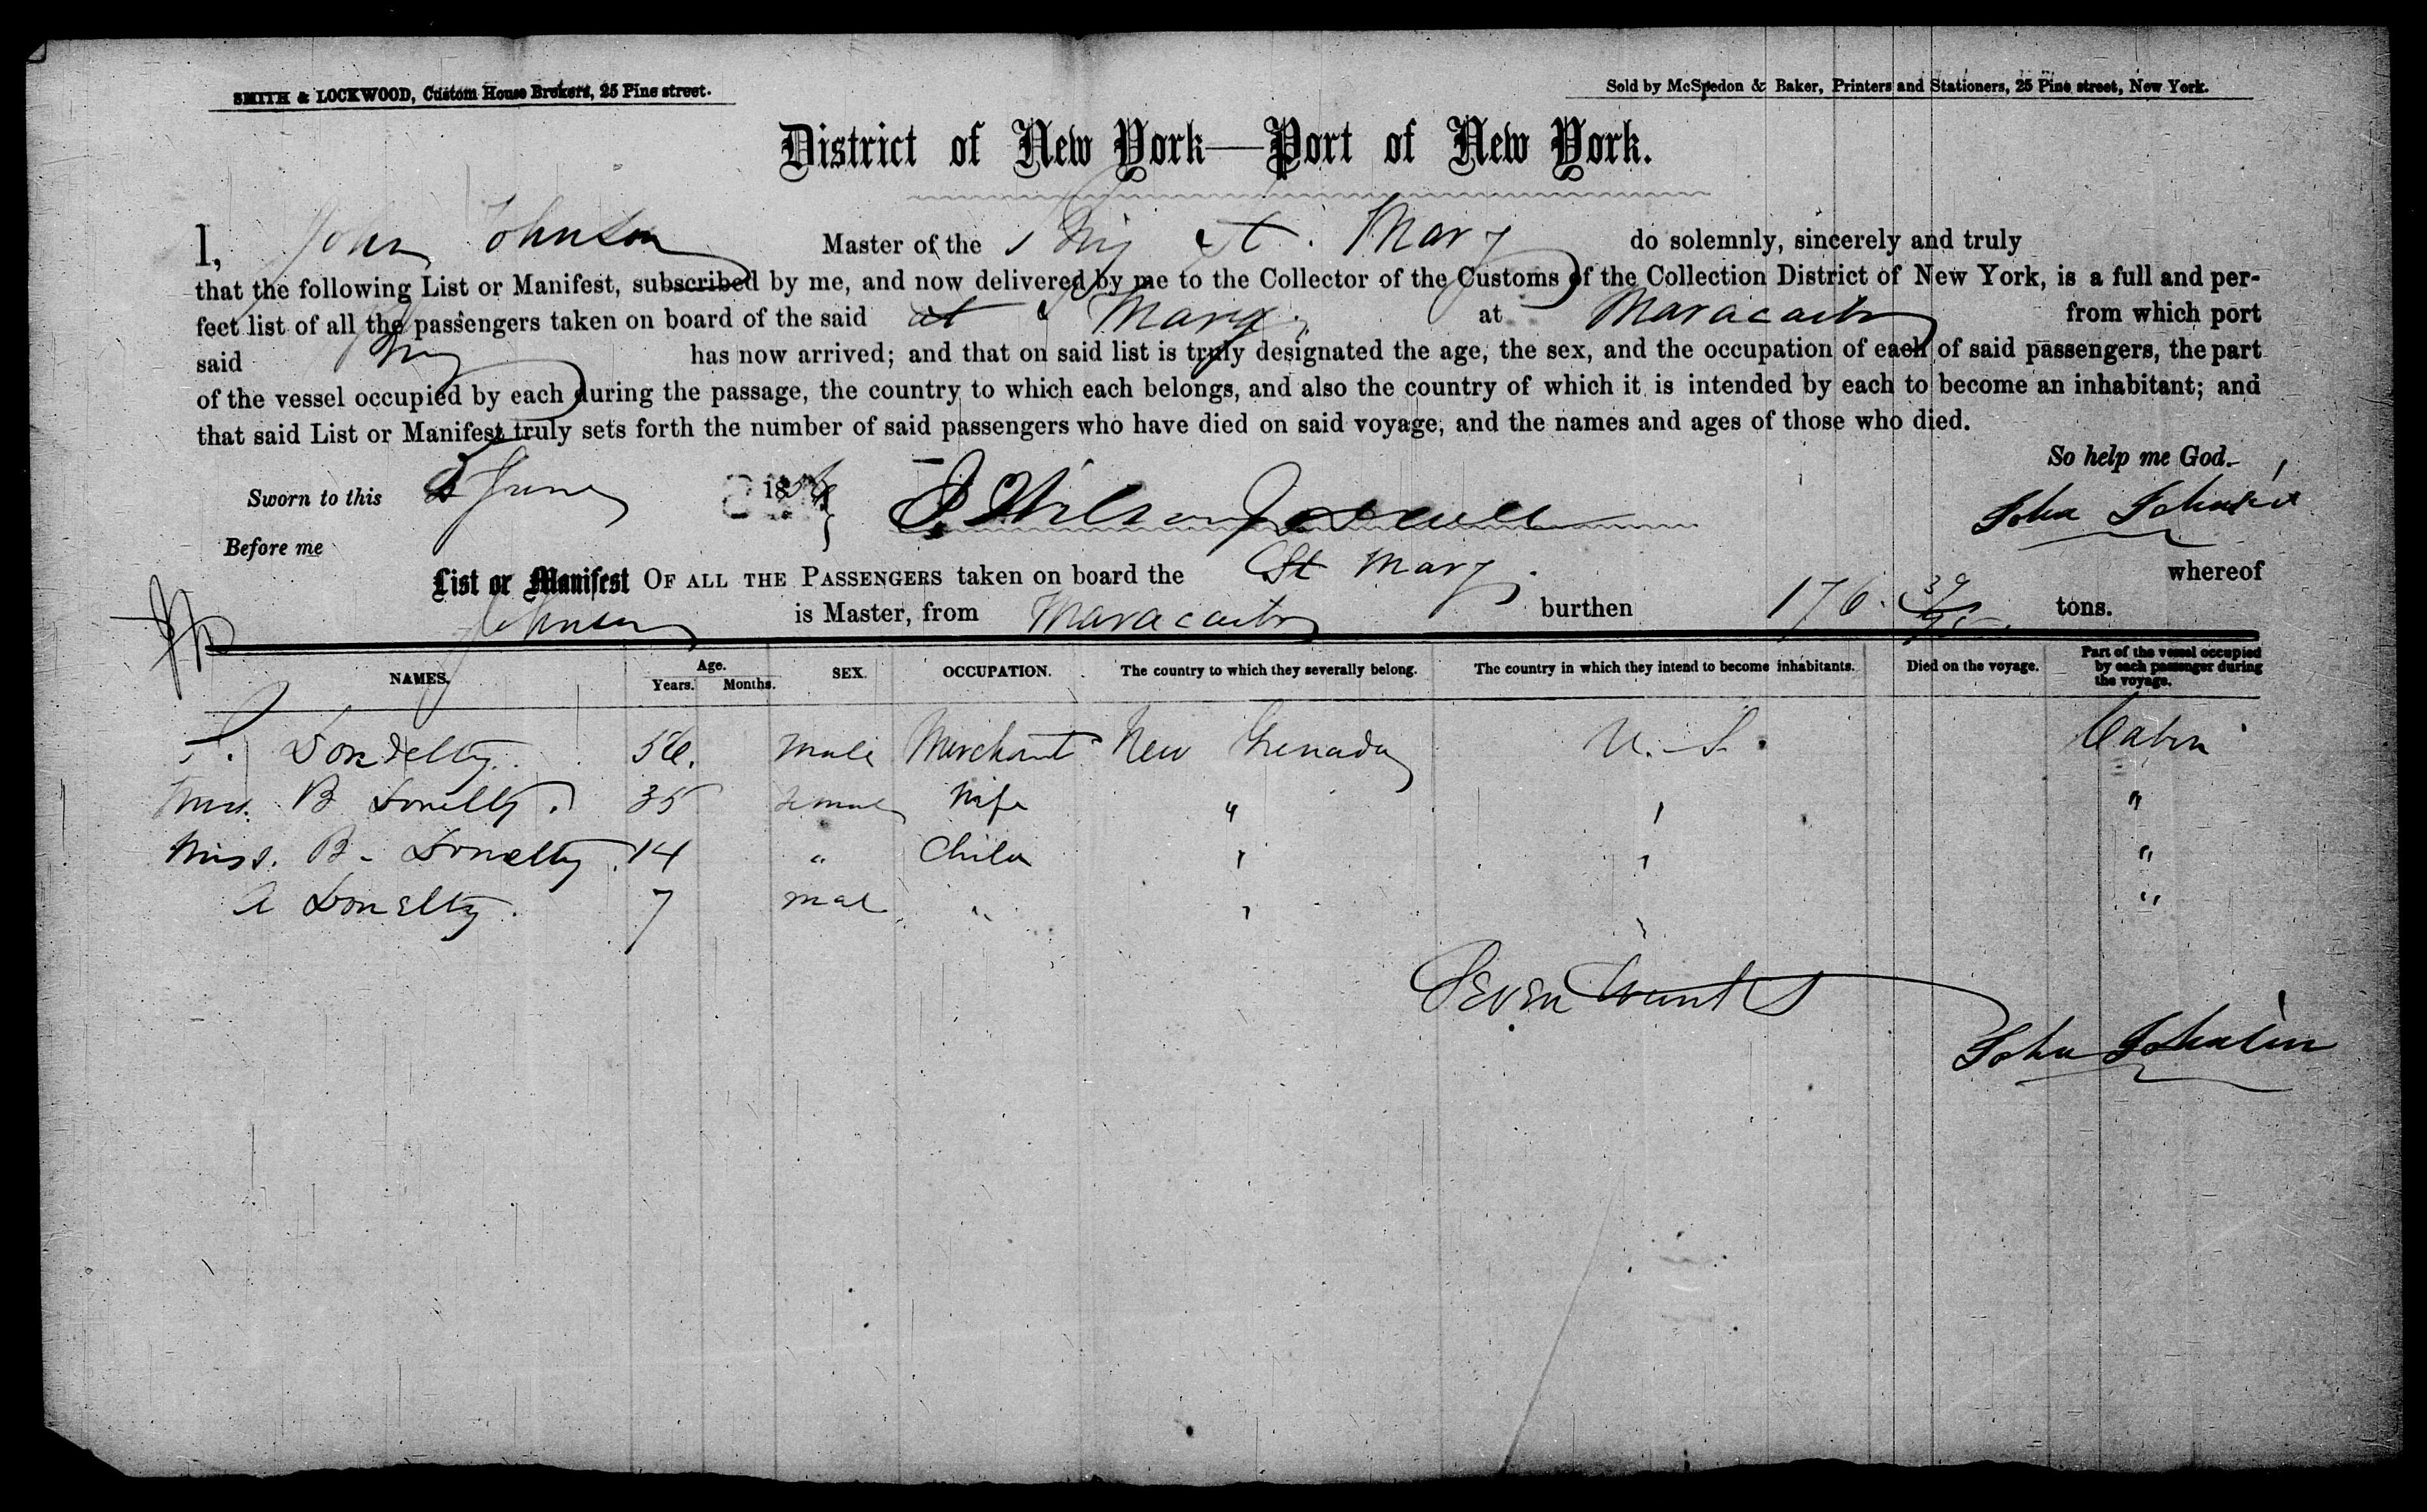 SMITH & LOCKWOOD, Custom House Brokers, 25 Pine street.
Sold by McSpedon & Baker, Printers and Stationers, 25 Pine street, New York.
District of New York—Port of New York.
I, John Johnson Master of the Brig St. Mary do solemnly, sincerely and truly
that the following List or Manifest, subscribed by me, and now delivered by me to the Collector of the Customs of the Collection District of New York, is a full and per-
fect list of all the passengers taken on board of the said St Mary at Maracaibo from which port
said Brig has now arrived; and that on said list is truly designated the age, the sex, and the occupation of each of said passengers, the part
of the vessel occupied by each during the passage, the country to which each belongs, and also the country of which it is intended by each to become an inhabitant; and
that said List or Manifest truly sets forth the number of said passengers who have died on said voyage, and the names and ages of those who died.
So help me God.
Sworn to this 5 June 1856
John Johnson
Before me
List or Manifest OF ALL THE PASSENGERS taken on board the St Mary whereof
Johnson is Master, from Maracaibo burthen 176. 39/95 tons.
NAMES. Age. Years. Months. SEX. OCCUPATION. The country to which they severally belong. The country in which they intend to become inhabitants. Died on the voyage. Part of the vessel occupied by each passenger during the voyage.
Donnelly 56. Male Merchant New Grenada U. S. Cabin
Mrs. B Donelly. 35 Female Wife " " "
Miss. B. Donelly. 14 " Child " " "
A Donelly. 7 Mal " " " "
Seven Trunks
John Johnson